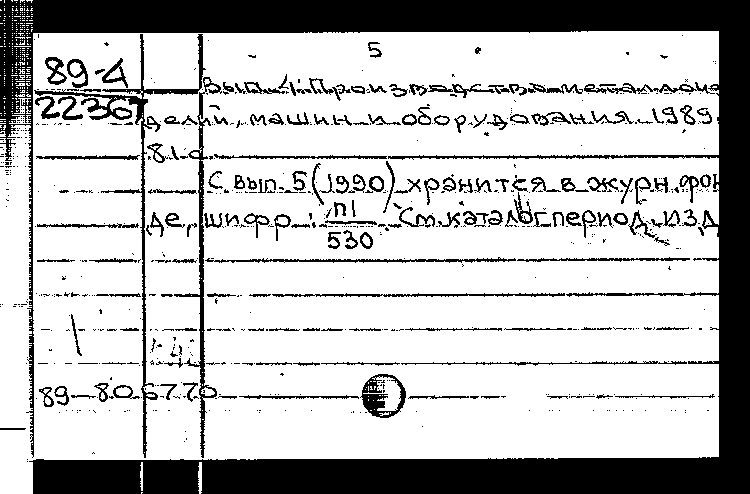 5
89-4
22367
Вып. 4. Производство металлоиз
делий, машин и оборудования. 1989.
81 с
С вып. 5 (1990) хранится в журн. фон
де, шифр: П1/530 См. каталог период. изд
89-806770